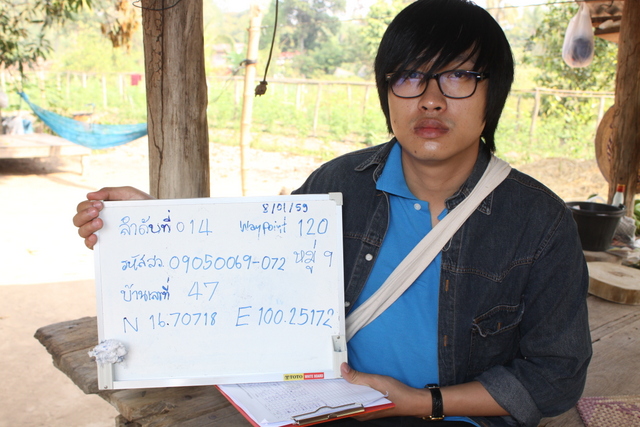 8/01/59
ลำดับที่ 014 waypoint 120
รหัสสว 09050069-072 หมู่ 9
บ้านเลขที่ 47
N 16.70718 E 100.25172
TOTO WHITE BOARD